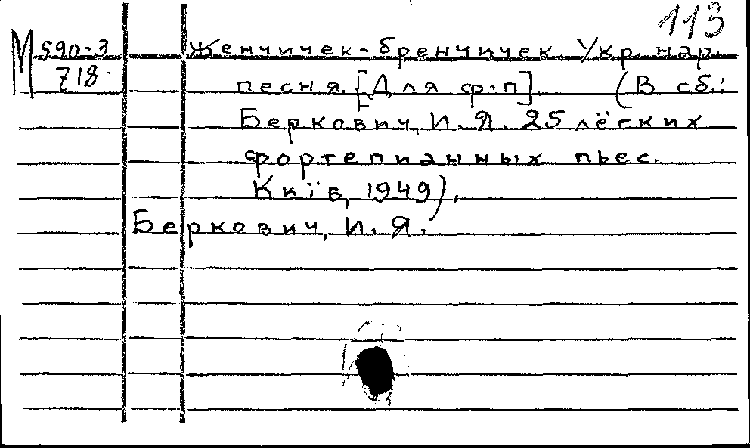 113
М 590-3
718
Женчичек-бренчичек. Укр. нар.
песня. [Для ф-п]. (В сб.:
Беркович, И. Я. 25 лёгких
фортепианных пьес.
Київ, 1949).
Беркович, И. Я.